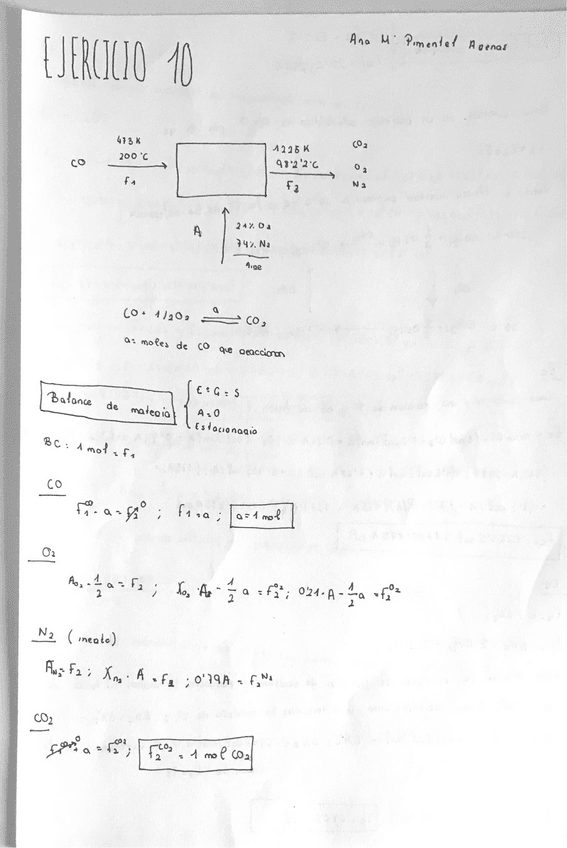 Ana Mª Pimentel Arenas
EJERCICIO 10
CO
473 K
200 °C
F1
1225 K
F2
CO2
O2
N2
A
21% O2
79% N2
aire
CO + 1/2O2 ⇌ CO2
a
a = moles de CO que reaccionan
Balance de materia
E + G = S
A = 0
Estacionario
BC: 1 mol = F1
CO
F1^CO - a = F2^0 ; F1 = a ; a = 1 mol
O2
A_O2 - 1/2 a = F2 ; X_O2 · A - 1/2 a = F2^O2 ; 0'21·A - 1/2 a = F2^O2
N2 (inerte)
A_N2 = F2 ; X_N2 · A = F2 ; 0'79A = F2^N2
CO2
a = F2^CO2 ; F2^CO2 = 1 mol CO2